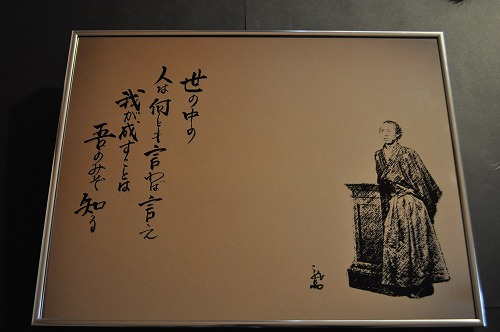 世の中の
人は何とも言わば言え
我が成すことは
吾のみぞ知る
龍馬